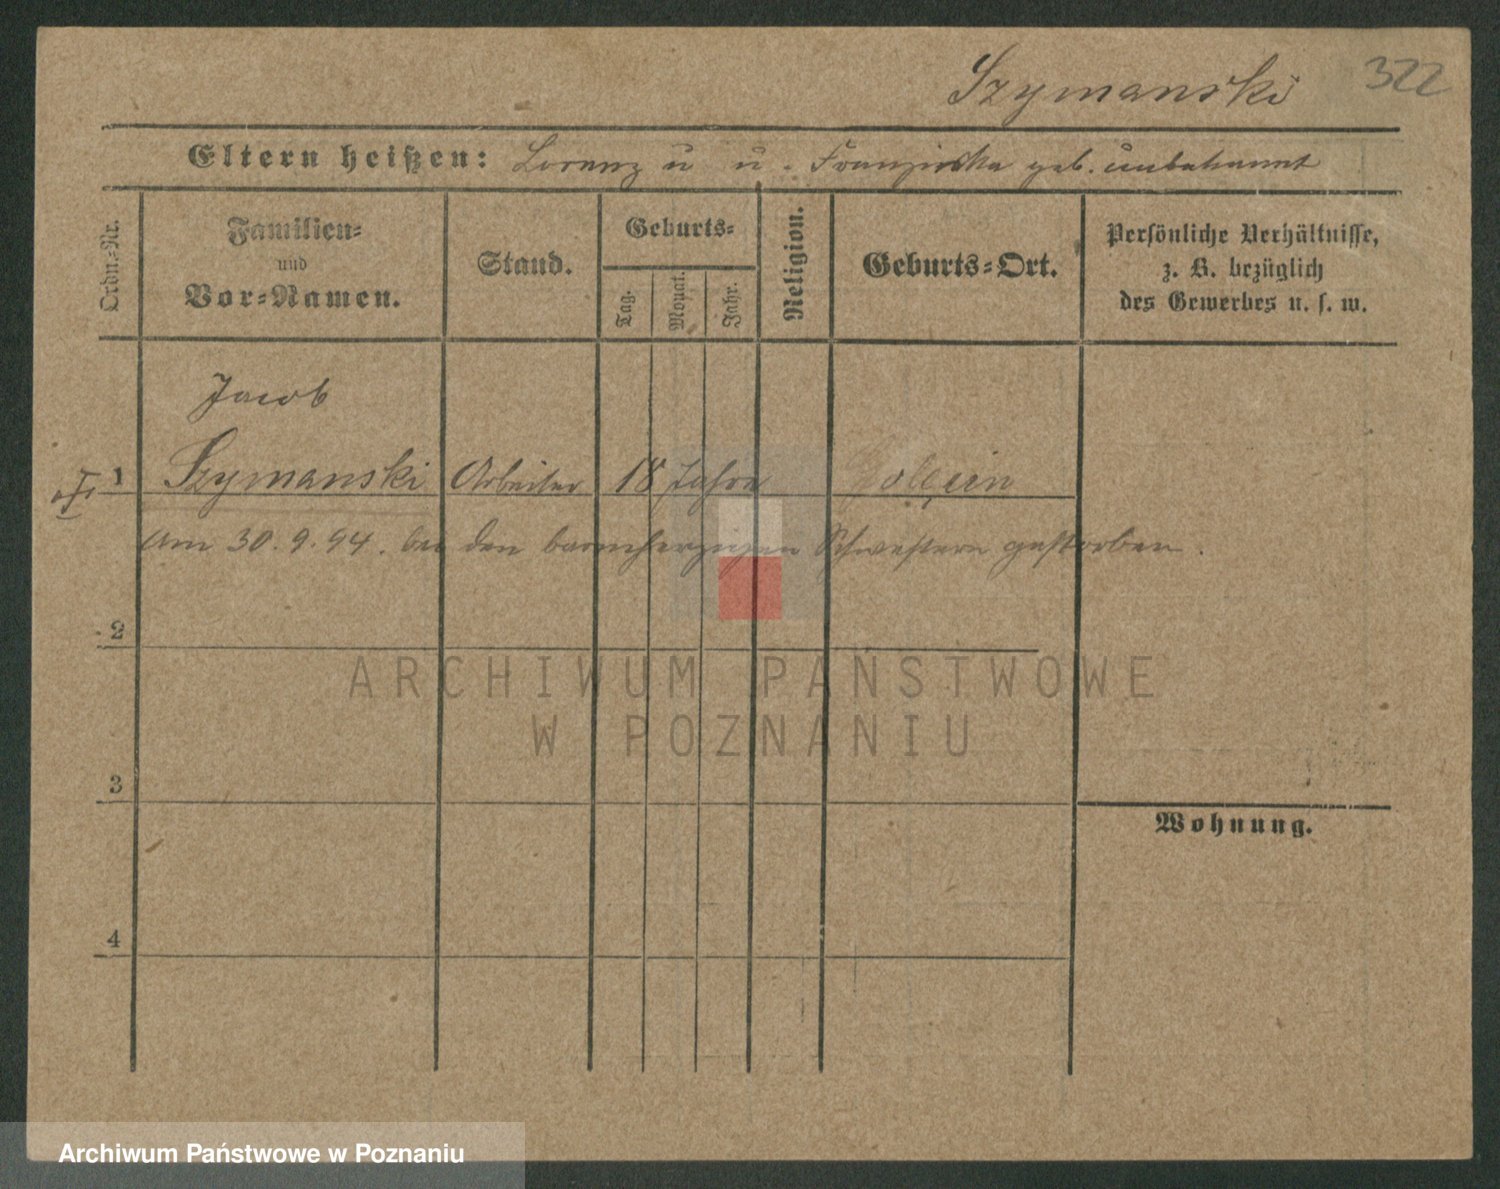 Szymanski 322
Eltern heißen: Lorenz u u. Franziska geb. unbekannt
Ordn.-Nr.
Familien-
und
Vor-Namen.
Stand.
Geburts-
Tag.
Monat.
Jahr.
Religion.
Geburts-Ort.
Persönliche Verhältnisse,
z. B. bezüglich
des Gewerbes u. s. w.
Jacob
1 Szymanski Arbeiter 18 Jahre
am 30.9.94. bei den barmherzigen Schwestern gestorben.
2
3
Wohnung.
4
ARCHIWUM PAŃSTWOWE
W POZNANIU
Archiwum Państwowe w Poznaniu